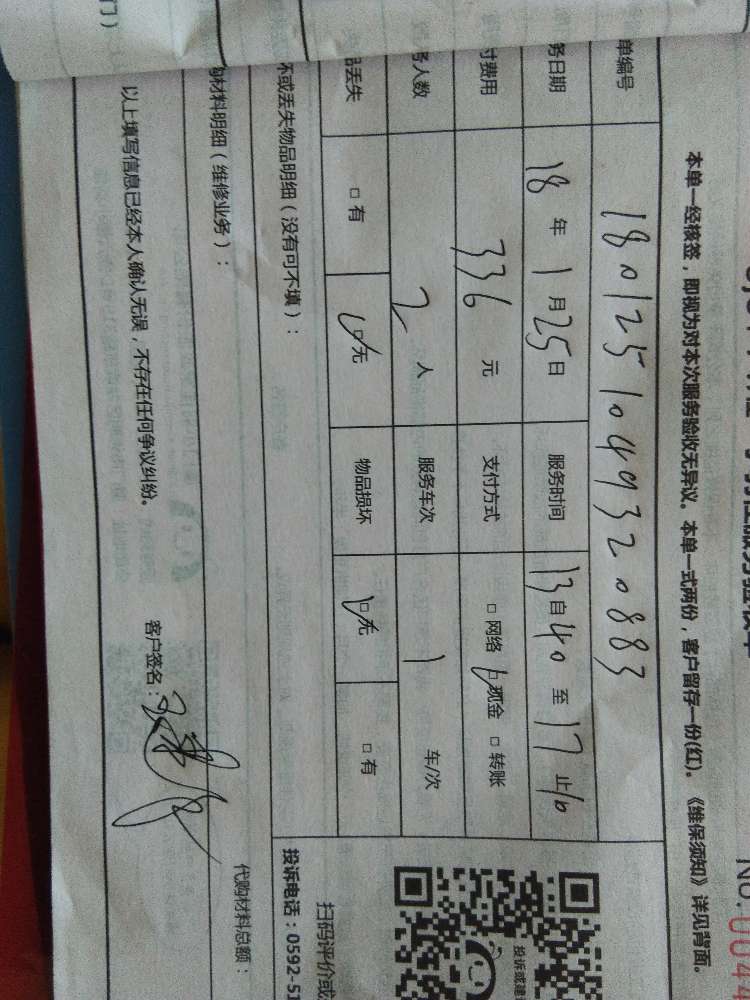 No.0044
本单一经核签，即视为对本次服务验收无异议。本单一式两份，客户留存一份(红)。《维保须知》详见背面。
单编号 180125104932 0883
务日期 18年1月25日 服务时间 13自40至17止10
付费用 336元 支付方式 □网络 ☑现金 □转账
务人数 2人 服务车次 1 车/次
品丢失 □有 ☑无 物品损坏 ☑无 □有
坏或丢失物品明细（没有可不填）：
购材料明细（维修业务）：
代购材料总额：
以上填写信息已经本人确认无误，不存在任何争议纠纷。
客户签名：
投诉或建
扫码评价或
投诉电话：0592-51